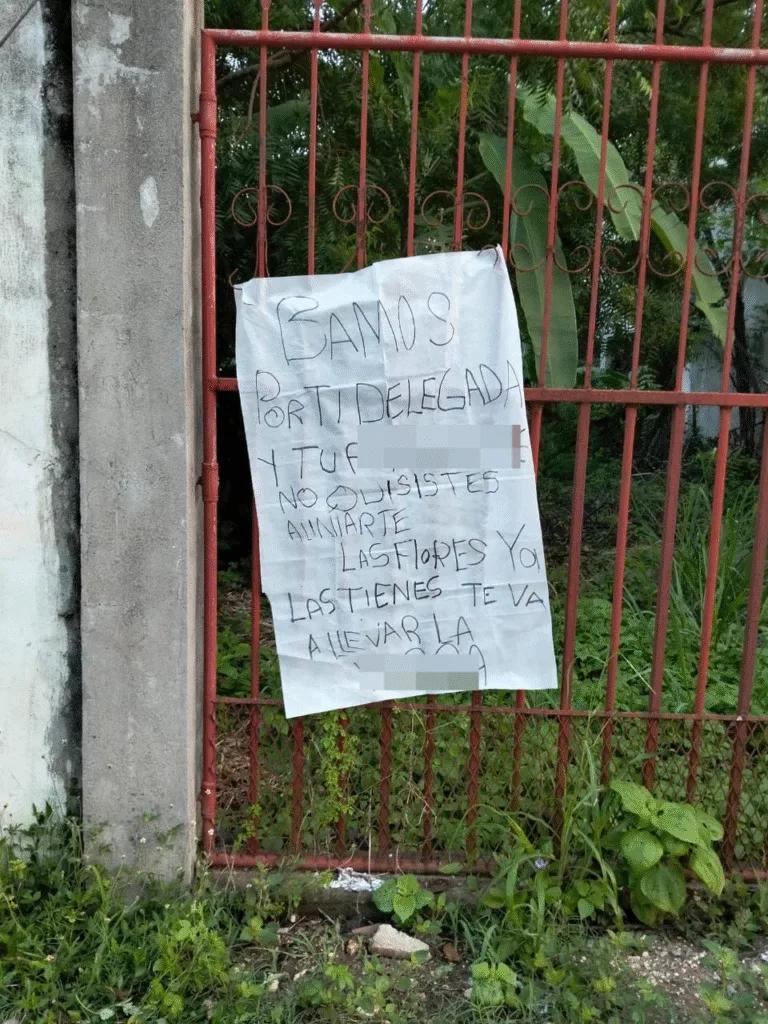 BAMOS
POR TI DELEGADA
Y TU
NO QUISISTES
ALINIARTE
LAS FLORES YA
LAS TIENES TE VA
A LLEVAR LA